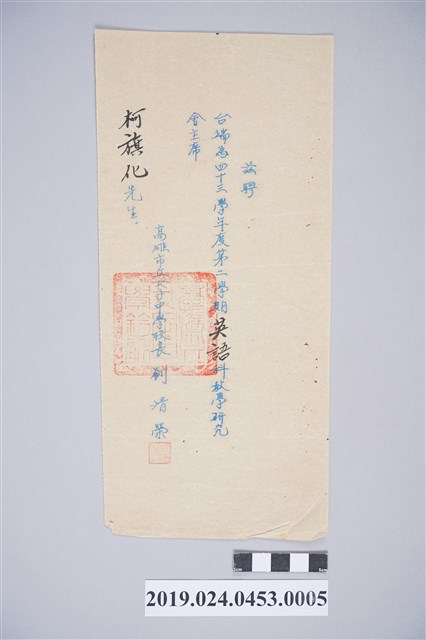 茲聘
台端為四十三學年度第二學期英語科教學研究
會主席
柯旗化先生
高雄市立女子中學校長 劉清榮
2019.024.0453.0005